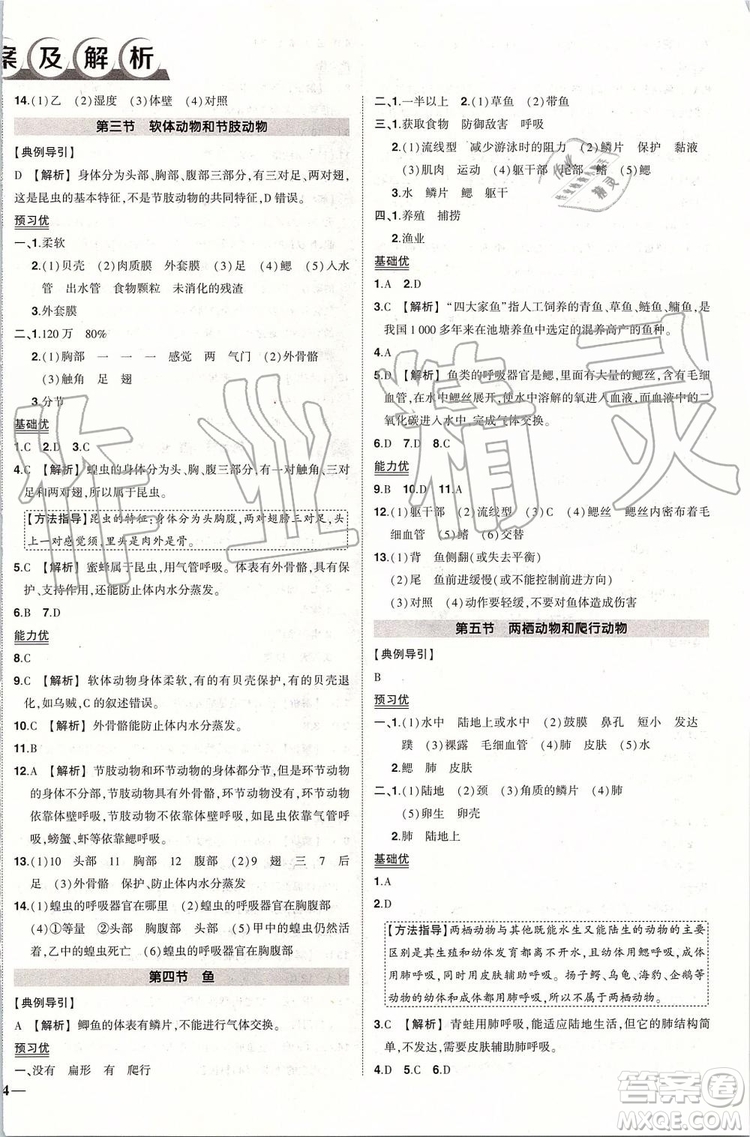 案及解析
14.(1)乙 (2)湿度 (3)体壁 (4)对照
第三节 软体动物和节肢动物
【典例导引】
D 【解析】身体分为头部、胸部、腹部三部分,有三对足、两对翅,
这是昆虫的基本特征,不是节肢动物的共同特征,D错误。
预习优
一、1.柔软
2.(1)贝壳 (2)肉质膜 外套膜 (3)足 (4)鳃 (5)入水
管 出水管 食物颗粒 未消化的残渣
3.外套膜
二、1.120万 80%
2.(1)胸部 一 一 一 感觉 两 气门 (2)外骨骼
(3)触角 足 翅
3.分节
基础优
1.C 2.D 3.C
4.C 【解析】蝗虫的身体分为头、胸、腹三部分,有三对
足和两对翅,所以属于昆虫。
【方法指导】昆虫的特征:身体分为头胸腹,两对翅膀三对足,头
上一对感觉须,里头是肉外是骨。
5.C 【解析】蜜蜂属于昆虫,用气管呼吸。体表有外骨骼,具有保
护、支持作用,还能防止体内水分蒸发。
6.B 7.D
能力优
8.C
9.C 【解析】软体动物身体柔软,有的有贝壳保护,有的贝壳退
化了,如乌贼,C的叙述错误。
10.C 【解析】外骨骼能防止体内水分蒸发。
11.B
12.A 【解析】节肢动物和环节动物的身体都分节,但是环节动物
的身体不分部分,节肢动物分部分,如昆虫的身体分为头部、胸
部和腹部。环节动物依靠体壁呼吸,节肢动物有的依靠气管呼
吸,螃蟹、虾等依靠鳃呼吸。
13.(1)10 头部 11 胸部 12 腹部 (2)9 翅 三 7 后
足 (3)外骨骼 保护、防止体内水分蒸发
14.(1)蝗虫的呼吸器官在哪里 (2)蝗虫的呼吸器官在胸腹部
(4)①等量 ②头部 ③胸腹部 (5)甲中的蝗虫仍然活
着,乙中的蝗虫死亡 (6)蝗虫的呼吸器官在胸腹部
第四节 鱼
【典例导引】
A 【解析】鲫鱼的体表有鳞片,不能进行气体交换。
预习优
一、没有 扁形 有 爬行
4—
二、1.一半以上 2.(1)草鱼 (2)带鱼
三、1.获取食物 防御敌害 呼吸
2.(1)流线型 减少游泳时的阻力 (2)鳞片 保护 黏液
(3)肌肉 运动 (4)躯干部 尾部 鳍 (5)鳃
3.水 鳞片 鳃 躯干
四、1.养殖 捕捞
2.渔业
基础优
1.A 2.D
3.C 【解析】“四大家鱼”指人工饲养的青鱼、草鱼、鲢鱼、鳙鱼,是
我国1 000多年来在池塘养鱼中选定的混养高产的鱼种。
4.A
5.D 【解析】鱼类的呼吸器官是鳃,里面有大量的鳃丝,含有毛细
血管,在水中鳃丝展开,使水中溶解的氧进入血液,而血液中的二
氧化碳进入水中,完成气体交换。
6.B 7.D 8.D
能力优
9.B 10.D 11.A
12.(1)躯干部 (2)流线型 (3)鳃 鳃丝 鳃丝内密布着毛
细血管 (5)尾 (6)鳍 (7)交替
13.(1)背 鱼侧翻(或失去平衡)
(2)尾 鱼前进缓慢(或不能正常前进)
(3)对照 (4)动作要轻缓,不要对鱼体造成伤害
第五节 两栖动物和爬行动物
【典例导引】
B
预习优
一、1.(1)水中 陆地上或水中 (2)鼓膜 鼻孔 短小 发达
蹼 (3)裸露 毛细血管 (4)肺 皮肤
2.鳃 肺 皮肤
二、1.(1)陆地 (2)颈 (3)角质的鳞片 (4)肺
(5)卵生 卵壳
2.肺 陆地上
基础优
1.A
2.A
【方法指导】两栖动物与其他既能水生又能陆生的动物的主要
区别是其生殖和幼体发育必须在水中进行,幼体要用鳃呼吸,
成体用肺呼吸,同时用皮肤辅助呼吸。扬子鳄、乌龟、海豹、企鹅等
动物的幼体都是用肺呼吸的,不属于两栖动物。
3.C 【解析】青蛙用肺呼吸,能适应陆地生活,但它的肺结构简
单,不发达,需要皮肤辅助呼吸。
4.D 5.D
作业精灵
作业精灵
答案圈
MXQE.COM